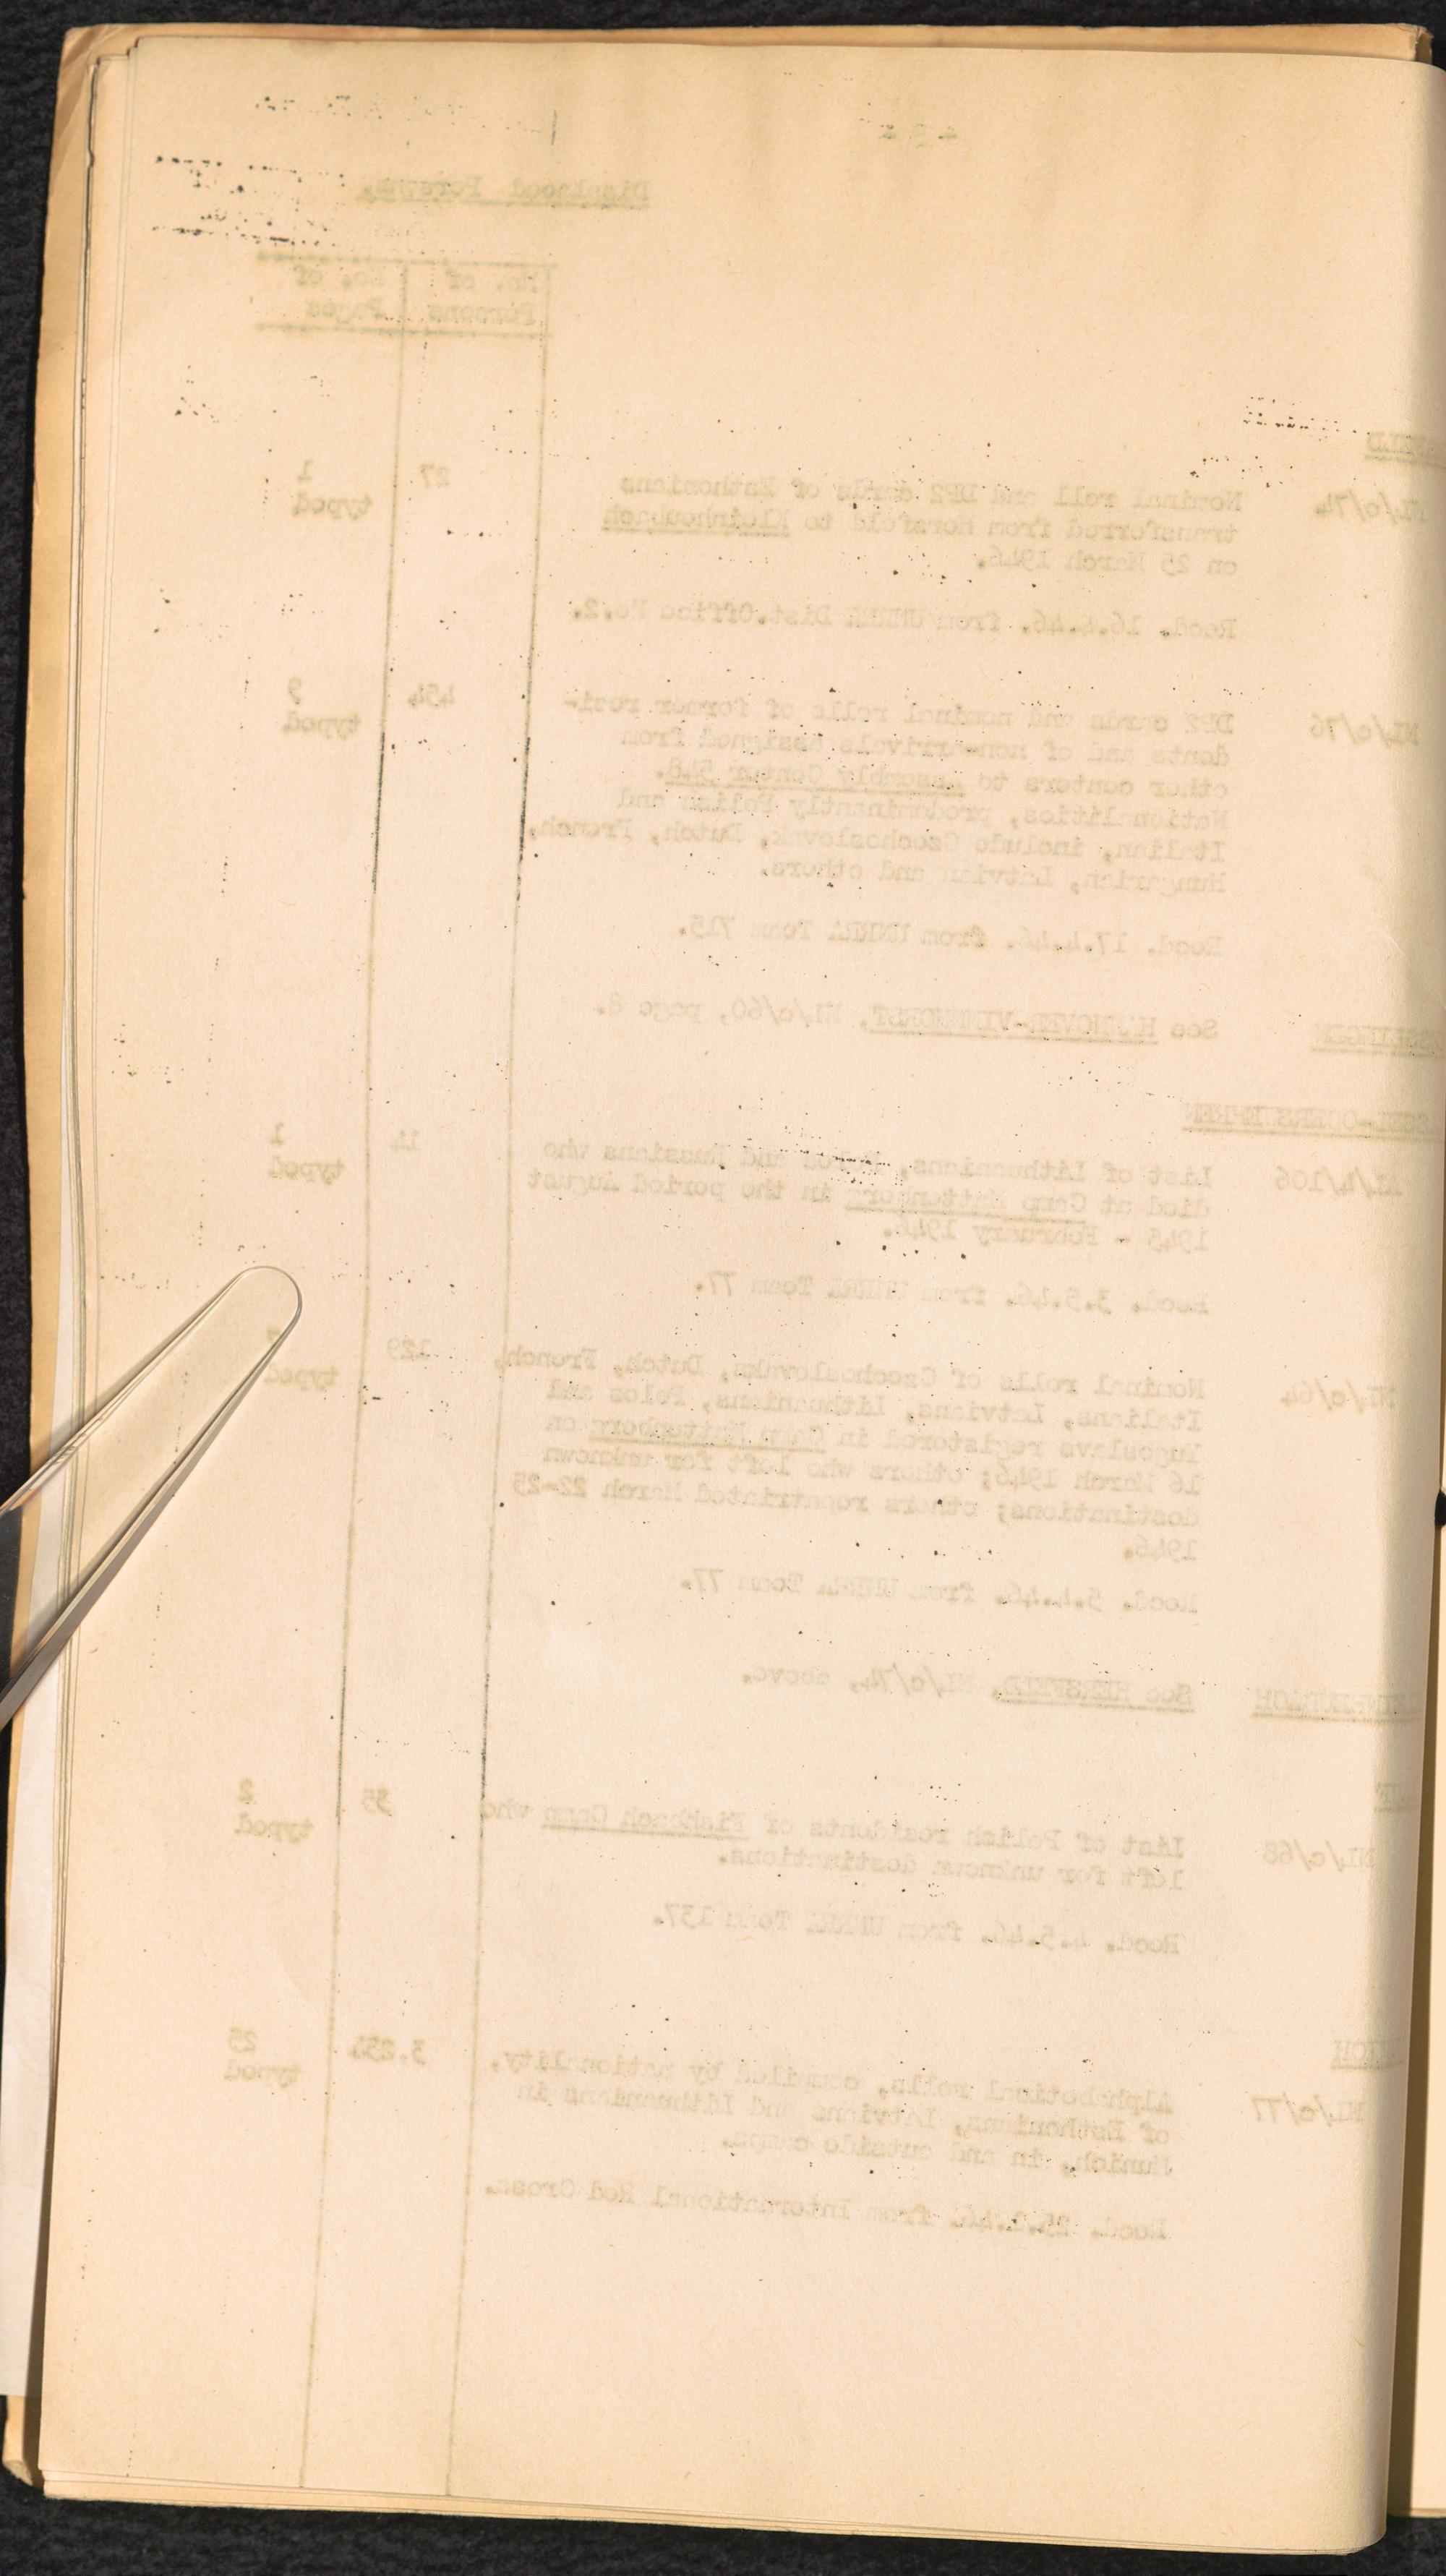 Displaced Persons.
No. of Persons No. of Pages
NI/c/74 Nominal roll and DP2 cards of Esthonians 27 1
transferred from Hersfeld to Kleinheubach typed
on 25 March 1946.
Recd. 16.4.46. from UNRRA Dist.Office No.2.
NI/c/76 DP2 cards and nominal rolls of former resi- 454 9
dents and of non-arrivals assigned from typed
other centers to Assembly Center 548.
Nationalities, predominantly Polish and
Italian, include Czechoslovak, Dutch, French,
Hungarian, Latvian and others.
Recd. 17.4.46. from UNRRA Team 715.
See HANNOVER-VINNHORST, NI/c/60, page 8.
List of Lithuanians, Poles and Russians who 14 1
died at Camp Mattenberg in the period August typed
1945 - February 1946.
Recd. 3.5.46. from UNRRA Team 77.
NI/c/64 Nominal rolls of Czechoslovaks, Dutch, French, 129
Italians, Latvians, Lithuanians, Poles and typed
Yugoslavs registered in Camp Mattenberg on
16 March 1946; others who left for unknown
destinations; others repatriated March 22-25
1946.
Recd. 5.4.46. from UNRRA Team 77.
See HERSFELD, NI/c/74, above.
NI/c/68 List of Polish residents of Fishbach Camp who 35 2
left for unknown destinations. typed
Recd. 4.5.46. from UNRRA Team 137.
NI/c/77 Alphabetical rolls, compiled by nationality, 3.254 25
of Esthonians, Latvians and Lithuanians in typed
Munich, in and outside camps.
Recd. from International Red Cross.